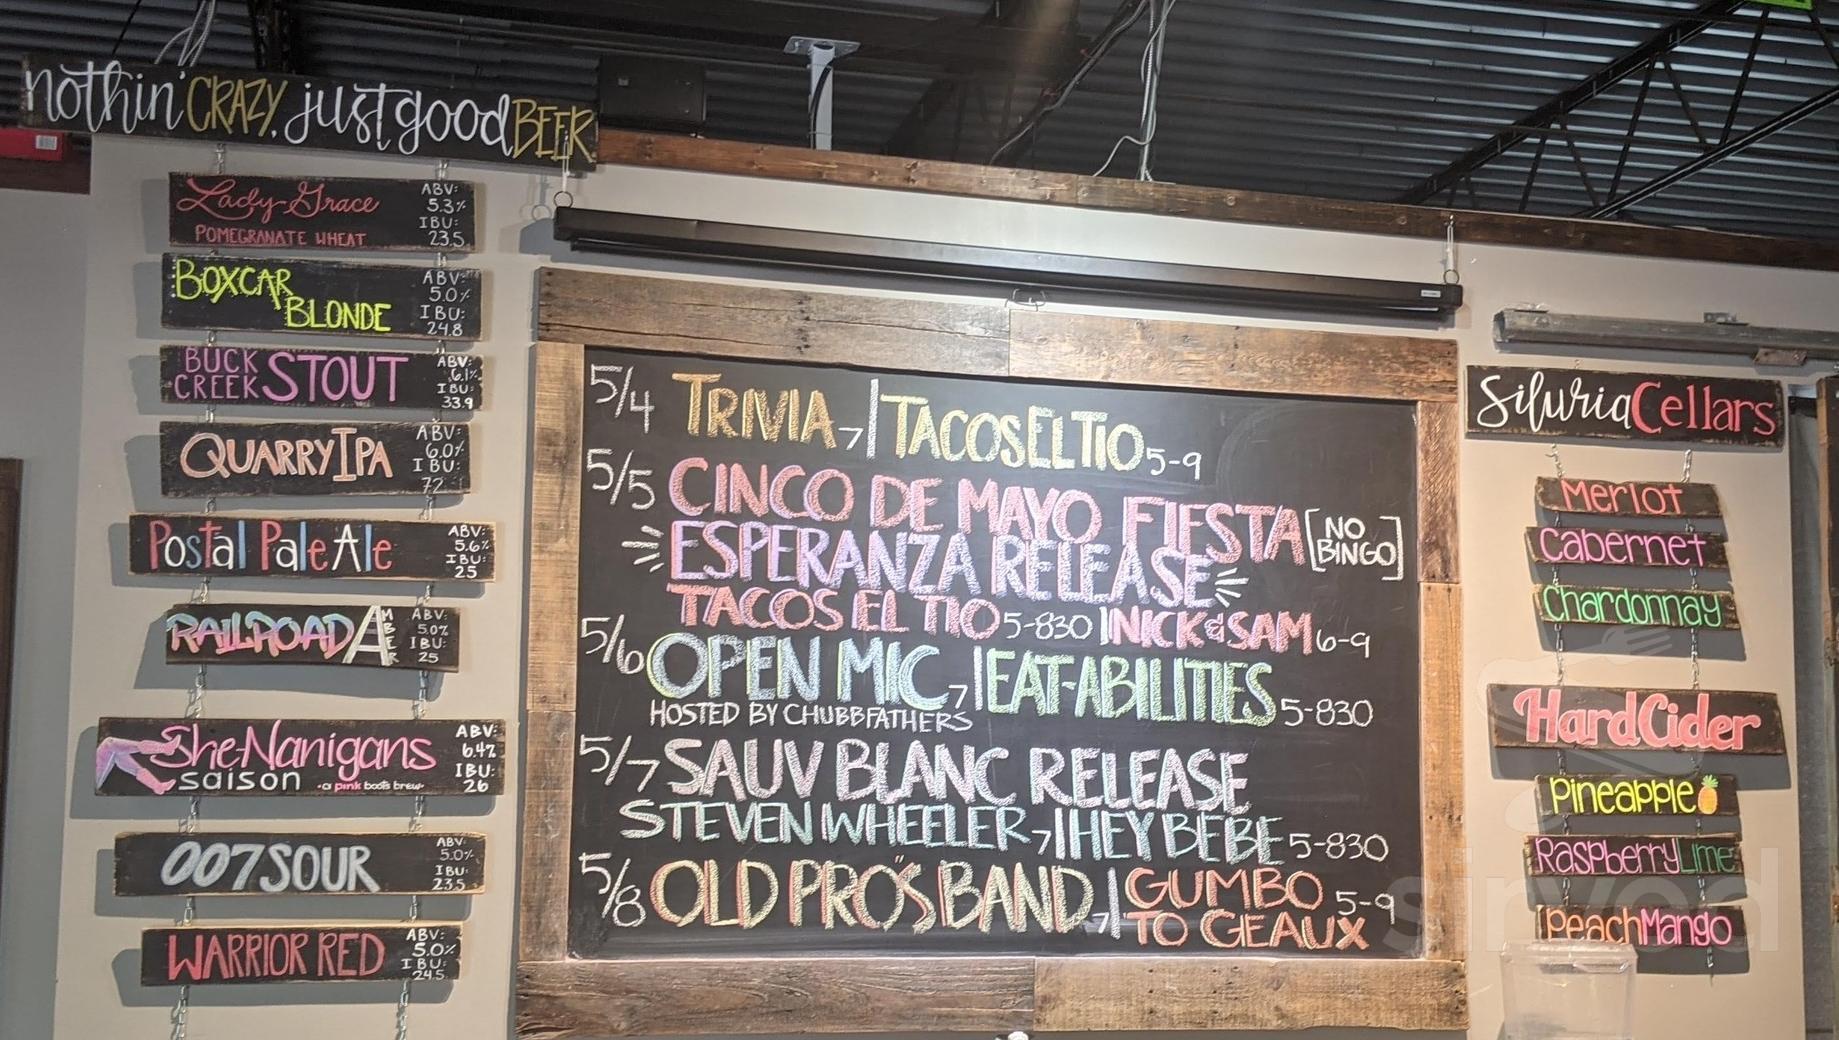 nothin' CRAZY, just good BEER
Lady Grace
POMEGRANATE WHEAT
ABV:
5.3%
IBU:
23.5
BOXCAR
BLONDE
ABV:
5.0%
IBU:
24.8
BUCK
CREEK STOUT
ABV:
6.1%
IBU:
33.9
QUARRY IPA
ABV:
6.0%
IBU:
72
Postal Pale Ale
ABV:
5.6%
IBU:
25
RAILROAD AMBER
ABV:
5.0%
IBU:
25
She-Nanigans
saison -a pink boots brew-
ABV:
6.4%
IBU:
26
007 SOUR
ABV:
5.0%
IBU:
23.5
WARRIOR RED
ABV:
5.0%
IBU:
24.5
5/4 TRIVIA 7 | TACOS EL TIO 5-9
5/5 CINCO DE MAYO FIESTA [NO BINGO]
ESPERANZA RELEASE
TACOS EL TIO 5-830 | NICK & SAM 6-9
5/6 OPEN MIC 7 | EAT-ABILITIES 5-830
HOSTED BY CHUBBFATHERS
5/7 SAUV BLANC RELEASE
STEVEN WHEELER 7 | HEY BEBE 5-830
5/8 OLD PRO'S BAND 7 | GUMBO 5-9
TO GEAUX
Siluria Cellars
Merlot
Cabernet
Chardonnay
Hard Cider
Pineapple
Raspberry Lime
Peach Mango
sirved